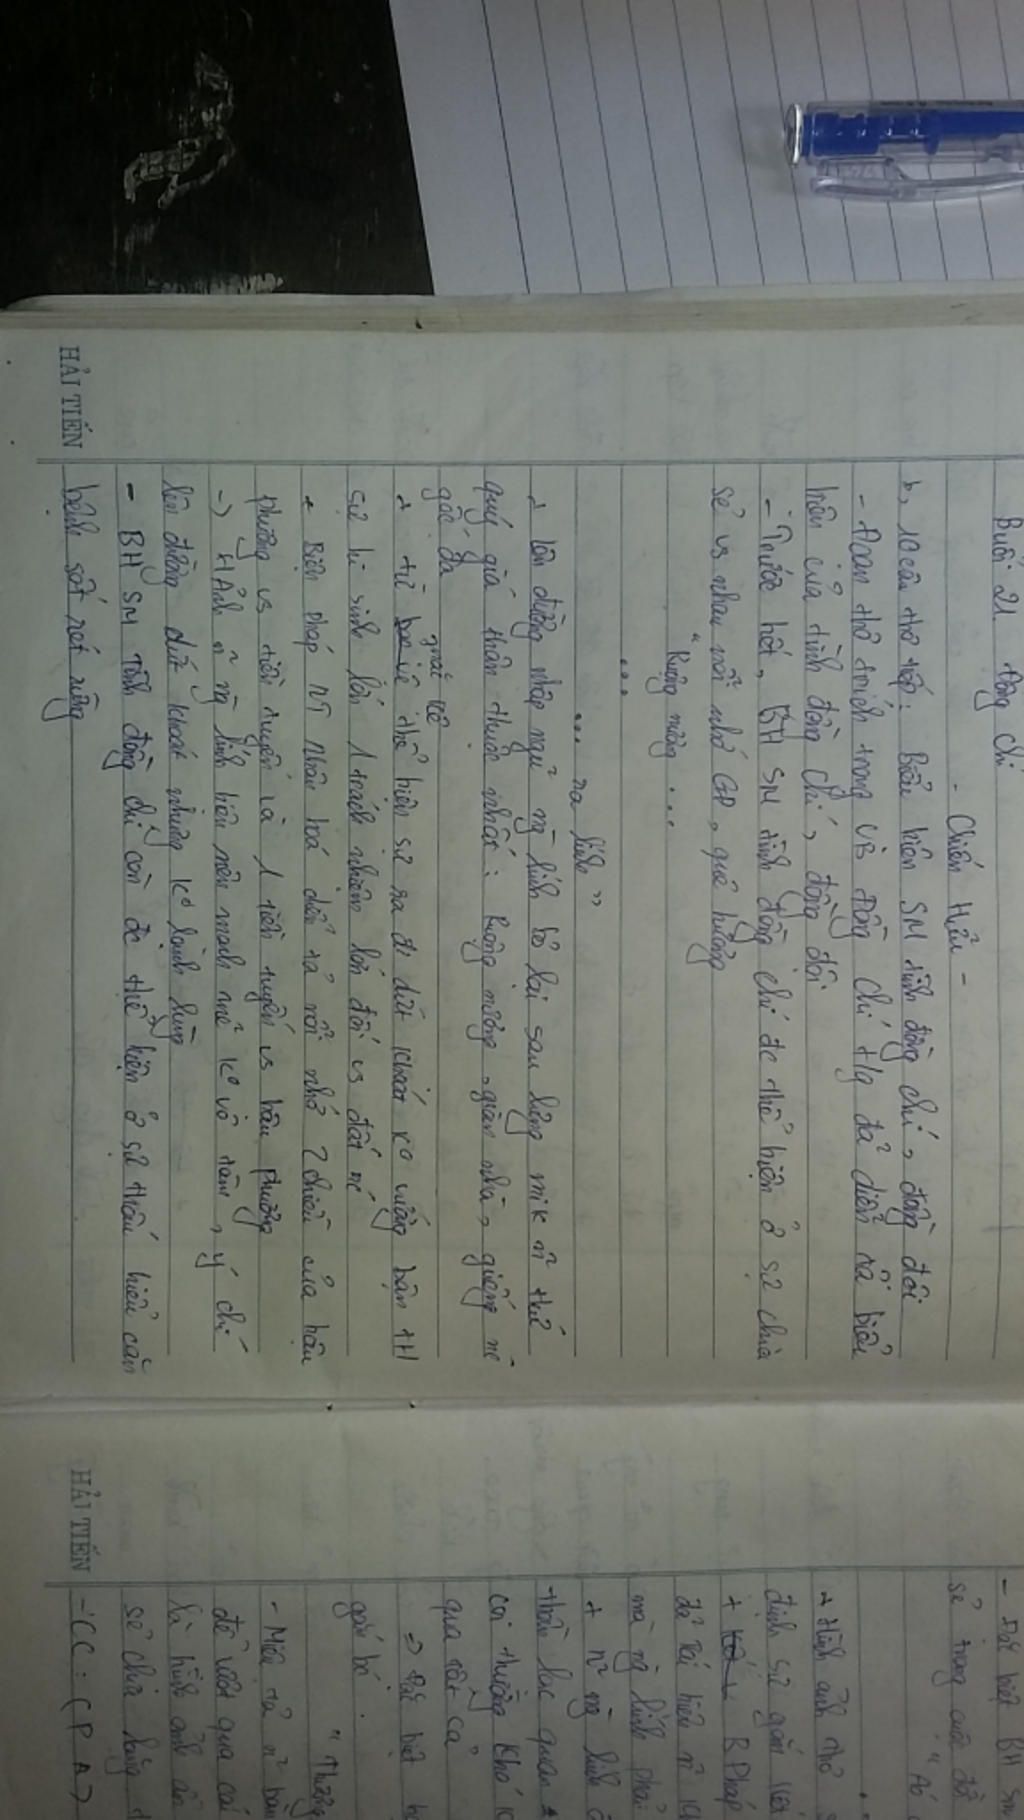 Buổi 21 Đồng chí
- Chính Hữu -
b, 10 câu thơ tiếp: Biểu hiện SM tình đồng chí, đồng đội
- Đoạn thơ trích trong VB Đồng chí t/g đã diễn tả biểu
hiện của tình đồng chí, đồng đội
- Trước hết, BH SM tình đồng chí đc thể hiện ở sự chia
sẻ vs nhau nỗi nhớ GĐ, quê hương
" Ruộng nương ...
...
... ra lính "
+ lên đường nhập ngũ ng lính bỏ lại sau lưng mik n~ thứ
quý giá thân thuộc nhất: ruộng nương, gian nhà, giếng nc
gốc đa
mặc kệ
+ từ thể hiện sự ra đi dứt khoát k° vướng bận t/h
sự hi sinh lớn 1 trách nhiệm lớn đối vs đất nc
+ Biện pháp NT nhân hoá diễn tả nỗi nhớ 2 chiều của hậu
phương vs tiền tuyến và tiền tuyến vs hậu phương
-> H/Ảnh n~ ng lính hiện lên mạnh mẽ k° vô tâm, ý chí
lên đường dứt khoát nhưng k° lạnh lùng
- BH SM tình đồng chí còn đc thể hiện ở sự thấu hiểu căn
bệnh sốt rét rừng
HẢI TIẾN
- Đặc biệt BH SM
sẻ trong cuộc đời
" Áo
+ Hình ảnh thơ
định sự gắn kết
+ B Pháp
đã tái hiện n~
mà ng lính phải
+ n~ ng lính
thần lạc quan
coi thường khó
qua tất cả
=> Đặc biệt
gắn bó.
" Thương
- Miêu tả n~ bàn
để vượt qua cái
là hình ảnh
sẻ chia bằng
- CC: (P A)
HẢI TIẾN